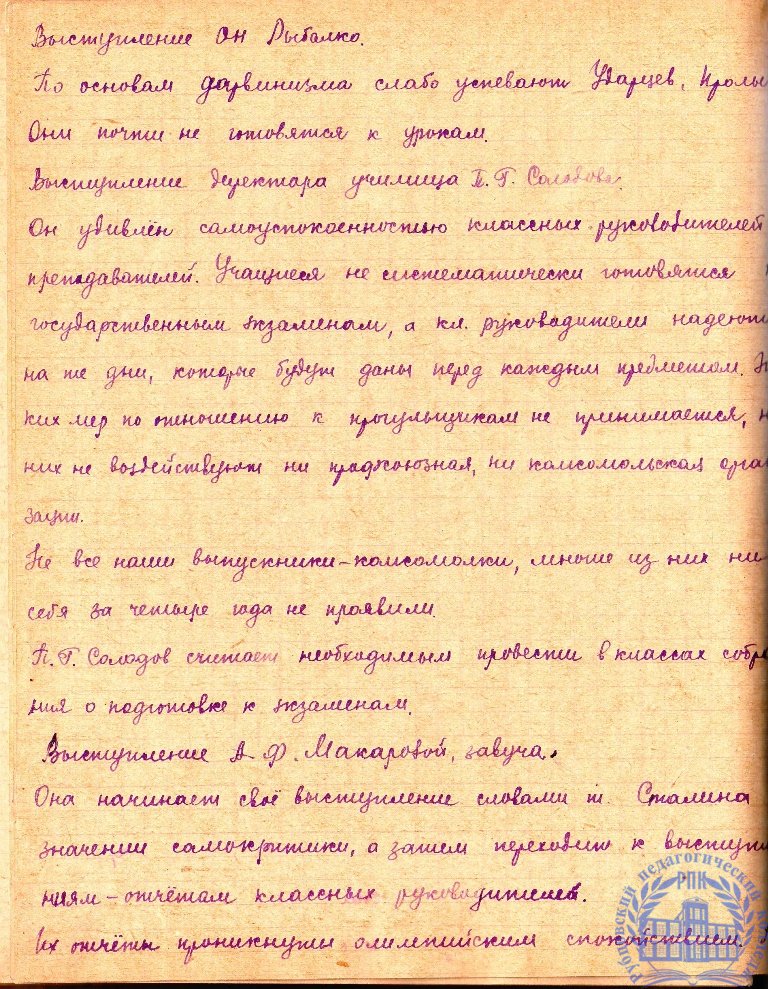 Выступление Он Рыбалко.
По основам дарвинизма слабо успевают Ударцев,
Они почти не готовятся к урокам.
Выступление директора училища П. Г. Солодова.
Он удивлён самоуспокоенностью классных руководителей
преподавателей. Учащиеся не систематически готовятся
государственным экзаменам, а кл. руководители надеют
на те дни, которые будут даны перед каждым предметом.
ких мер по отношению к прогульщикам не принимается, н
них не воздействуют ни профсоюзная, ни комсомольская орган
зации.
Не все наши выпускники-комсомолки, многие из них ни
себя за четыре года не проявили.
П. Г. Солодов считает необходимым провести в классах собра
ния о подготовке к экзаменам.
Выступление А. Ф. Макаровой, завуча.
Она начинает своё выступление словами т. Сталина
значении самокритики, а затем переходит к выступле
ниям-отчётам классных руководителей.
Их отчёты проникнуты олимпийским спокойствием.
педагогический
РПК